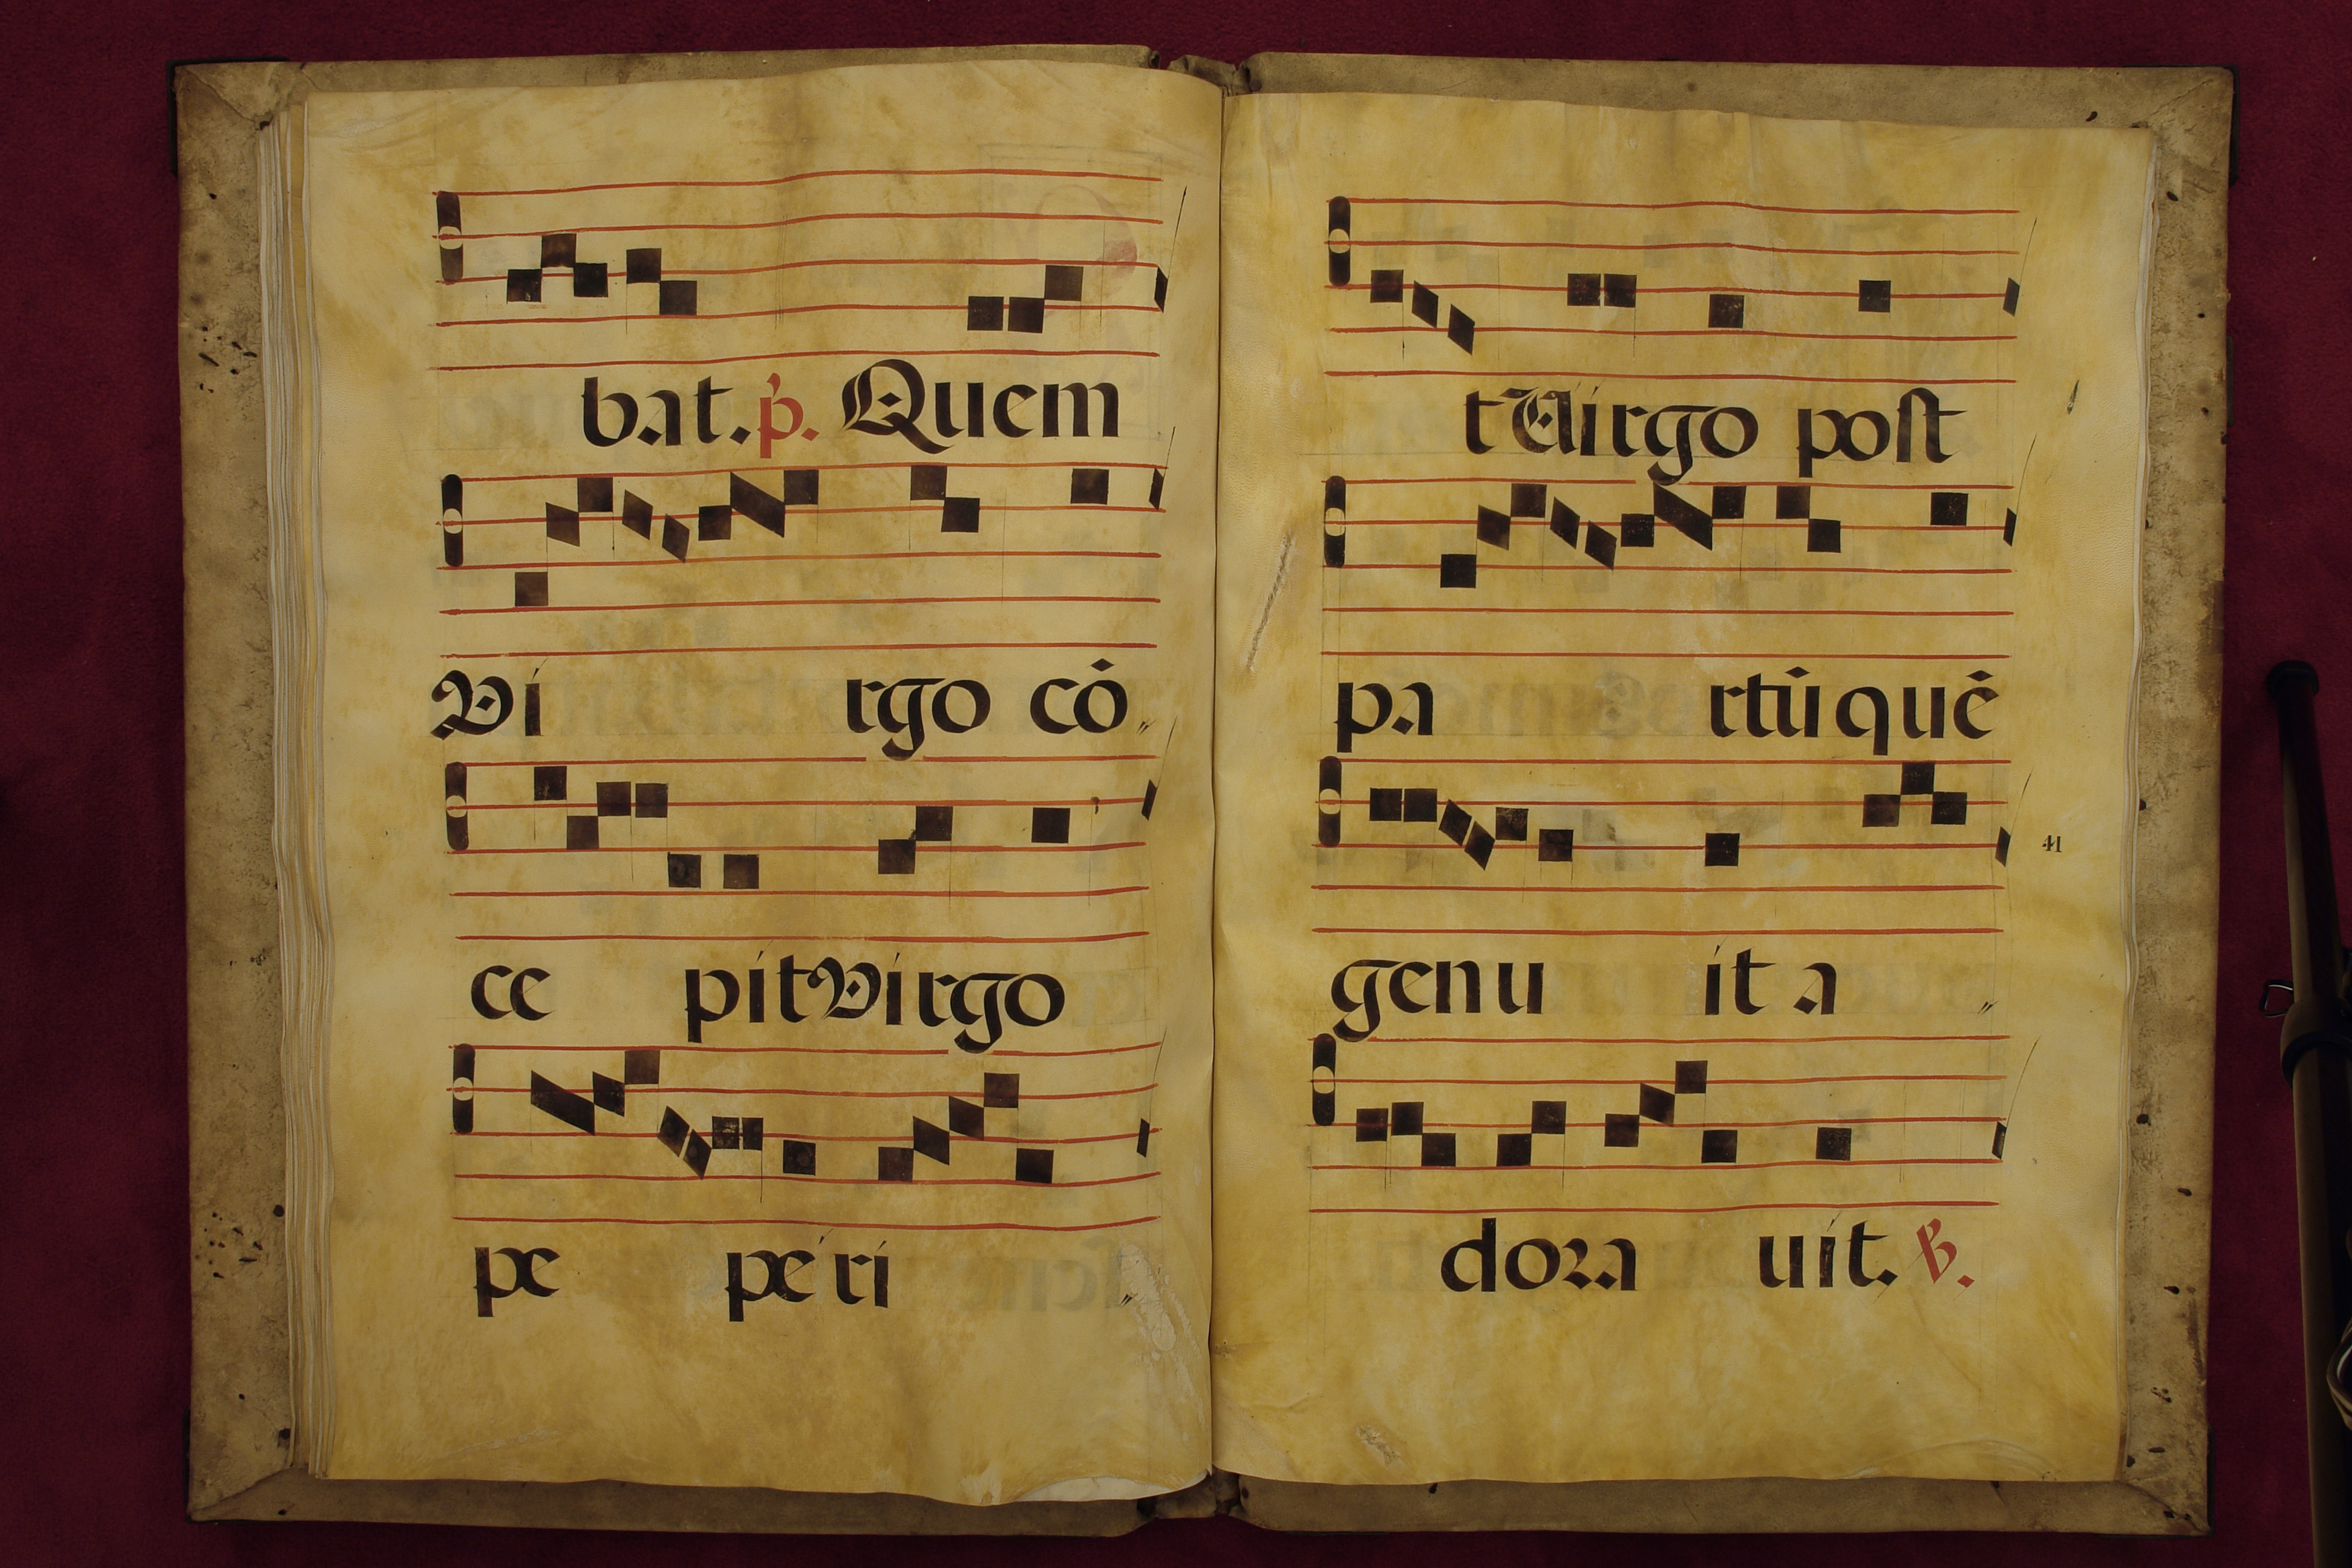 bat. p̄. Quem
Vi rgo cō
ce pit Virgo
pe pe ri
t Virgo post
pa rtū quē
41
genu it a
dora uit. ℣.